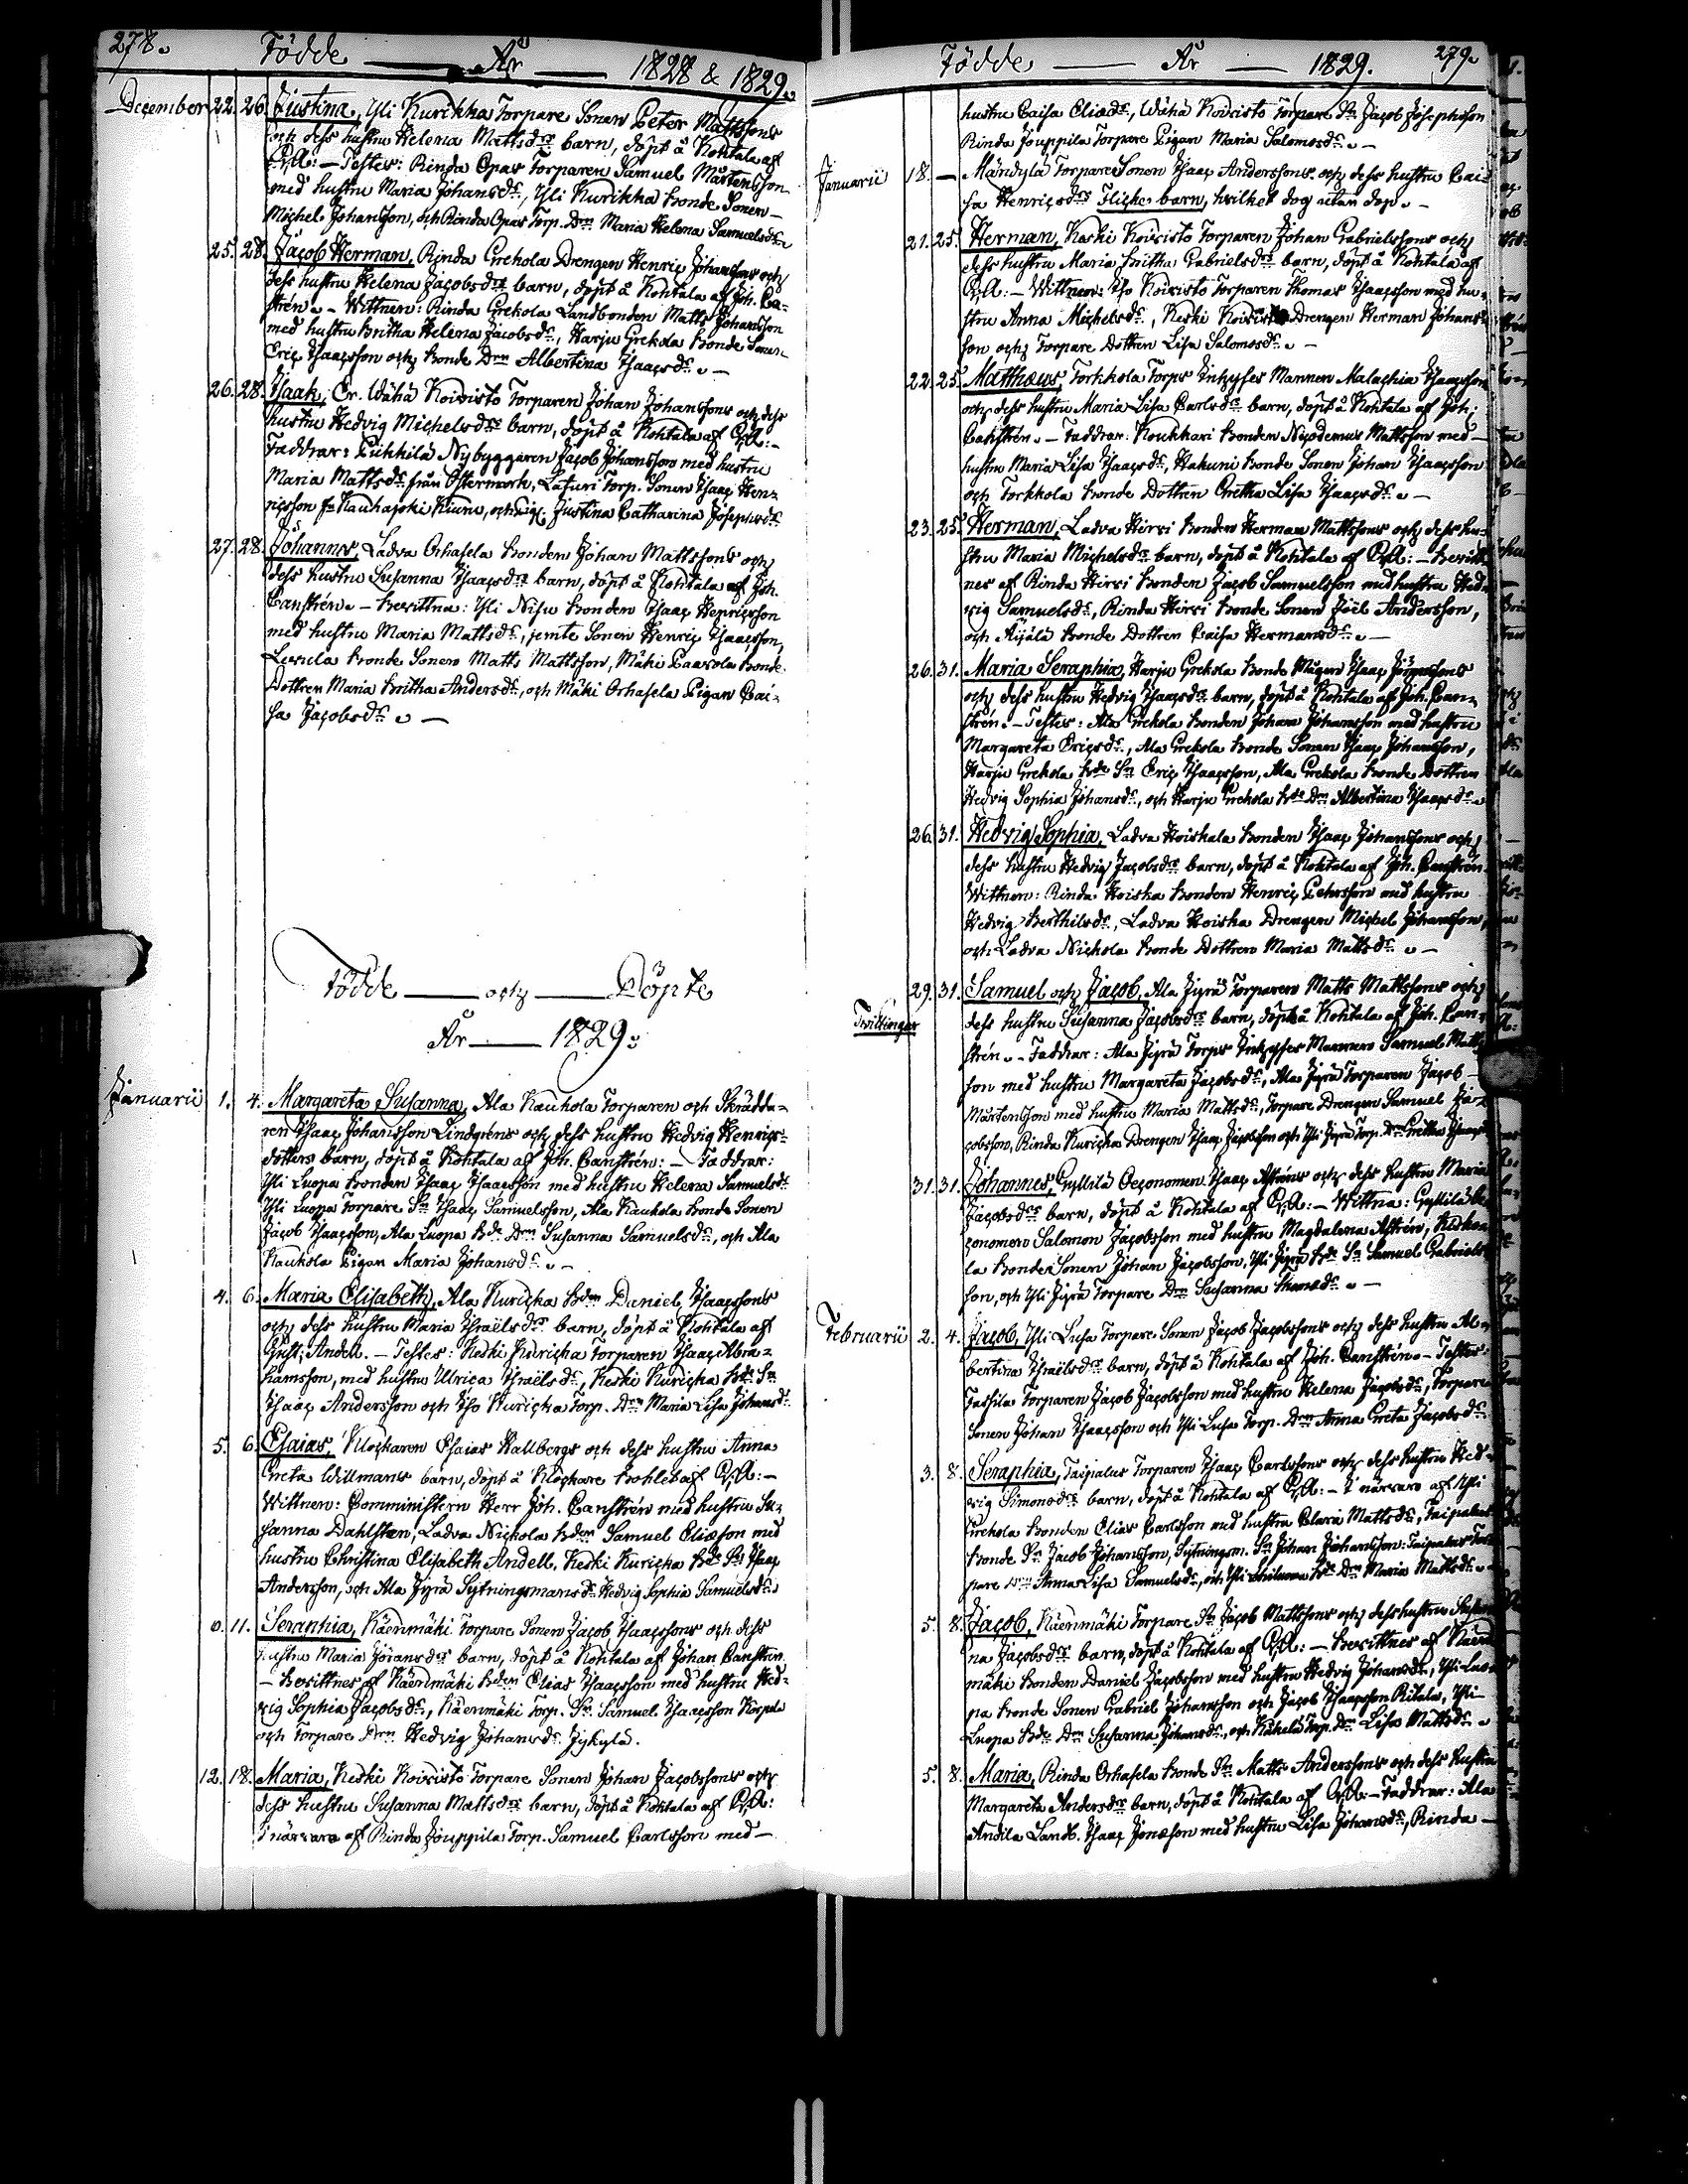 278. Födde — År — 1828 & 1829.
December 22. 26. Justina, Yli Kurikka Torpare Sonen Peter Mattssons
och dess hustru Helena Mattsdrs barn, döpt å Kohtala af
C.R.A: — Testes: Rinda Opas Torparen Samuel Mårtensson
med hustru Maria Johansdr, Yli Kurikka Bonde Sonen
Michel Johansson, och Rinda Opas Torp. Drn Maria Helena Samuelsdr
25. 28. Jacob Herman, Rinda Grekola Drengen Henric Johanssons och
dess hustru Helena Jacobsdrs barn, döpt å Kohtala af Joh. Can-
strén. — Wittnen: Rinda Grekola Landbonden Matts Johansson
med hustru Britha Helena Jacobsdr, Harju Grekola Bonde Sonen
Eric Isaacsson och Bonde Drn Albertina Isaacsdr. —
26. 28. Isaak, Er. Wähä Koivisto Torparen Johan Johanssons och dess
hustru Hedvig Michelsdrs barn, döpt å Kohtala af
Faddrar: Pihkkilä Nybyggaren Jacob Johansson med hustru
Maria Mattsdr från Östermark, Lafuri Torp. Sonen Isaac Hen-
ricsson fn Kauhajoki Kiuru, och Pig. Justina Catharina Josephsdr
27. 28. Johannes, Ladva Orhasela Bonden Johan Mattssons och
dess hustru Susanna Isaacsdrs barn, döpt å Kohtala af Joh.
Canstrén. — Bevittna: Yli Nisu Bonden Isaac Henricsson
med hustru Maria Mattsdr, jemte Sonen Henric Isaacsson,
Levula Bonde Sonen Matts Mattsson, Mäki Paavola Bonde
Dottren Maria Britha Andersdr, och Mäki Orhasela Pigan Cai-
sa Jacobsdr. —
Födde — och — Döpte
År — 1829.
Januarii 1. 4. Margareta Susanna, Ala Kaukola Torparen och Skrädda-
ren Isaac Johansson Lindgréns och dess hustru Hedvig Henrics-
dotters barn, döpt å Kohtala af Joh. Canstrén: — Faddrar:
Yli Luopa Bonden Isaac Isaacsson med hustru Helena Samuelsdr
Yli Luopa Torpare Sn Isaac Samuelsson, Ala Kaukola Bonde Sonen
Jacob Isaacsson, Ala Luopa Bde Drn Susanna Samuelsdr, och Ala
Kaukola Pigan Maria Johansdr. —
4. 6. Maria Elisabeth, Ala Kuricka Bden Daniel Isaacssons
och dess hustru Maria Israëlsdrs barn, döpt å Kohtala af
Gust. Andell. — Testes: Keski Kuricka Torparen Isaac Abra-
hamsson, med hustru Ulrica Israëlsdr, Keski Kuricka Bde Sn
Isaac Andersson och Iso Kuricka Torp. Drn Maria Lisa Johansdr.
5. 6. Esaias, Klockaren Esaias Hallbergs och dess hustru Anna
Greta Willmans barn, döpt å Klockare Bohlet af
Wittnen: Comministern Herr Joh. Canstrén med hustru Su-
sanna Dahlsten, Ladva Nickola Bden Samuel Eliæson med
hustru Christina Elisabeth Andell, Keski Kuricka Bde Sn Isaac
Andersson, och Ala Jyrä Sytningsmansdr Hedvig Sophia Samuelsdr.
11. Seraphia, Käenmäki Torpare Sonen Jacob Isaacssons och dess
hustru Maria Jöransdrs barn, döpt å Kohtala af Johan Canstrén
— Bevittnes af Käenmäki Bden Elias Isaacsson med hustru Hed-
vig Sophia Jacobsdr, Käenmäki Torp. Sn Samuel Isaacsson Korpela
och Torpare Drn Hedvig Johansdr Jykylä.
12. 18. Maria, Keski Koivisto Torpare Sonen Johan Jacobssons och
dess hustru Susanna Mattsdrs barn, döpt å Kohtala af
I närvaro af Rinda Jouppila Torp. Samuel Carlsson med —
Födde — År — 1829. 279.
hustru Caisa Eliædr, Wähä Koivisto Torpare Sn Jacob Josephsson
Rinda Jouppila Torpare Pigan Maria Salomosdr. —
Januarii 18. — Mändylä Torpare Sonen Isaac Anderssons och dess hustru Cai-
sa Henricsdrs Flicke barn, hvilket dog utan dop. —
21. 25. Herman, Keski Koivisto Torparen Johan Gabrielssons och
dess hustru Maria Britha Gabrielsdrs barn, döpt å Kohtala af
— Wittnen: Iso Koivisto Torparen Thomas Isaacsson med hu-
stru Anna Michelsdr, Keski Koivisto Drengen Herman Johans-
son och Torpare Dottren Lisa Salomosdr. —
22. 25. Matthæus, Torkkola Torps Inhyses Mannen Malachia Isaacsson
och dess hustru Maria Lisa Carlsdrs barn, döpt å Kohtala af Joh.
Canstrén. — Faddrar: Koukkari Bonden Nicodemus Mattsson med —
hustru Maria Lisa Isaacsdr, Hakuni Bonde Sonen Johan Isaacsson
och Torkkola Bonde Dottren Gretha Lisa Isaacsdr. —
23. 25. Herman, Ladva Hirvi Bonden Herman Mattssons och dess hu-
stru Maria Michelsdrs barn, döpt å Kohtala af — Bevitt-
nes af Rinda Hirvi Bonden Jacob Samuelsson med hustru Hed-
vig Samuelsdr, Rinda Hirvi Bonde Sonen Joël Andersson,
och Äijälä Bonde Dottren Caisa Hermansdr. —
26. 31. Maria Seraphia, Harju Grekola Bonde Mågen Isaac
och dess hustru Hedvig Isaacsdrs barn, döpt å Kohtala af Joh. Can-
strén. — Testes: Ala Grekola Bonden Johan Johansson med hustru
Margareta Ericsdr, Ala Grekola Bonde Sonen Isaac Johansson,
Harju Grekola Bde Sn Eric Isaacsson, Ala Grekola Bonde Dottren
Hedvig Sophia Johansdr, och Harju Grekola Bde Drn Albertina Isaacsdr.
26. 31. Hedvig Sophia, Ladva Koiskala Bonden Isaac Johanssons och
dess hustru Hedvig Jacobsdrs barn, döpt å Kohtala af Joh. Canstrén.
Wittnen: Rinda Koiska Bonden Henric Pehrsson med hustru
Hedvig Berthilsdr, Ladva Koiska Drengen Michel Johansson,
och Ladva Nickola Bonde Dottren Maria Mattsdr. —
Twillingar 29. 31. Samuel och Jacob, Ala Jyrä Torparen Matts Mattssons och
dess hustru Susanna Jacobsdrs barn, döpte å Kohtala af Joh. Can-
strén. — Faddrar: Ala Jyrä Torps Inhyses Mannen Samuel Matts-
son med hustru Margareta Jacobsdr, Ala Jyrä Torparen Jacob
Mårtensson med hustru Maria Mattsdr, Torpare Drengen Samuel Ja-
cobsson, Rinda Kuricka Drengen Isaac Jacobsson och Yli Jyrä Torp. Drn Gretha Isaacs
31. 31. Johannes, Gyllilä Oeconomen Isaac Astréns och dess hustru Maria
Jacobsdrs barn, döpt å Kohtala af — Wittna: Gyllilä Oe-
conomen Salomon Jacobsson med hustru Magdalena Astrén,
la Bonde Sonen Johan Jacobsson, Yli Jyrä Bde Sn Samuel Gabriels-
son, och Yli Jyrä Torpare Drn Susanna
Februarii 2. 4. Jacob, Yli Lusa Torpare Sonen Jacob Jacobssons och dess hustru Al-
bertina Israëlsdrs barn, döpt å Kohtala af Joh. Canstrén. — Testes:
Tassila Torparen Jacob Jacobsson med hustru Helena Jacobsdr, Torpare
Sonen Johan Isaacsson och Yli Lusa Torp. Drn Anna Greta Jacobsdr.
3. 8. Seraphia, Taipalus Torparen Isaac Carlssons och dess hustru Hed-
vig Simonsdrs barn, döpt å Kohtala af — I närvaro af Yli
Grekola Bonden Elias Carlsson med hustru Clara Mattsdr, Taipalus
Bonde Sn Jacob Johansson, Sytningsm. Sn Johan Johansson: Taipalus Tor-
pare Drn Anna Lisa Samuelsdr, och Yli Bde Drn Maria Mattsdr.
5. 8. Jacob, Käenmäki Torpare Sn Jacob Mattssons och dess hustru Susan-
na Jacobsdrs barn, döpt å Kohtala af — Bevittnes af Käen-
mäki Bonden Daniel Jacobsson med hustru Hedvig Johansdr, Yli Luo-
pa Bonde Sonen Gabriel Johansson och Jacob Isaacsson Ritala, Yli
Luopa Bde Drn Susanna Johansdr, och Torp. Drn Lisa Mattsdr.
5. 8. Maria, Rinda Orhasela Bonde Sn Matts Anderssons och dess hustru
Margareta Andersdrs barn, döpt å Kohtala af — Faddrar: Ala
Andila Landb. Isaac Jonæson med hustru Lisa Johansdr, Rinda —